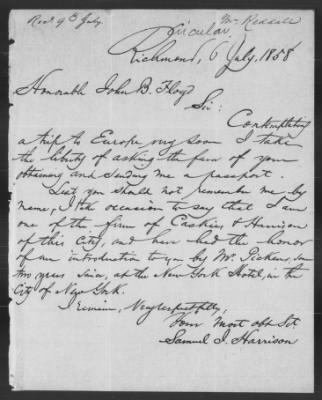 Recd 9th July.
Mr. Reddall
Circular.
Richmond, 6 July, 1858
Honorable John B. Floyd
Sir:
Contemplating
a trip to Europe very soon I take
the liberty of asking the favor of your
obtaining and sending me a passport.
Lest you should not remember me by
name, I take occasion to say that I am
one of the firm of Caskies & Harrison
of this City, and have had the honor
of an introduction to you by Mr. Pickens, some
two years since, at the New York Hotel, in the
City of New York.
I remain, Very respectfully,
Your most obt Svt
Samuel J. Harrison